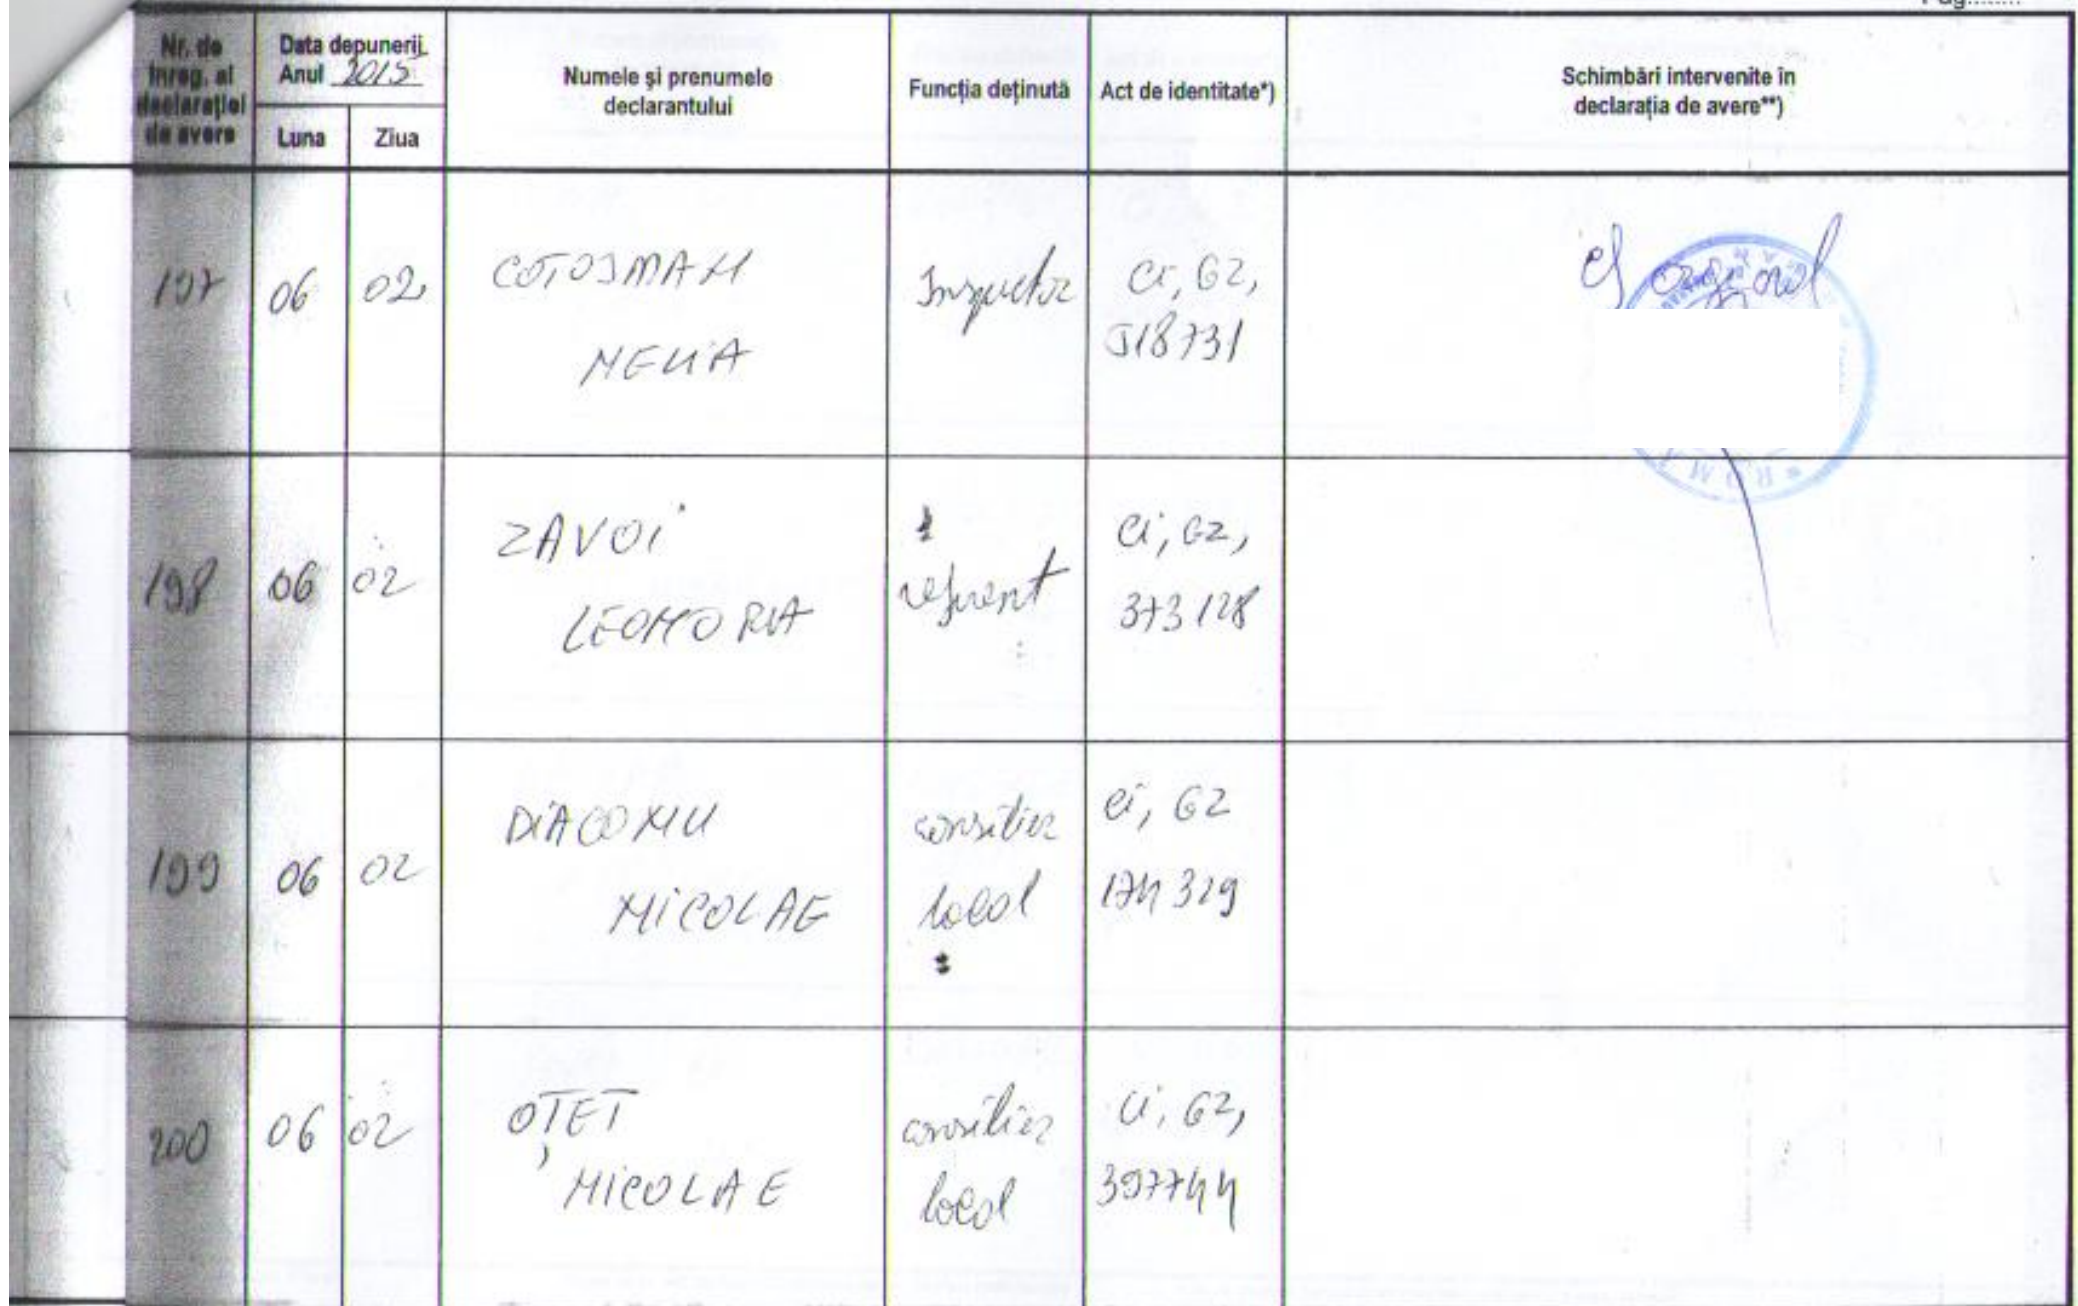 Pag.........
Nr. de
înreg. al
declarației
de avere
Data depunerii
Anul 2015
Luna
Ziua
Numele și prenumele
declarantului
Funcția deținută
Act de identitate*)
Schimbări intervenite în
declarația de avere**)
197
06
02
COTOSMAN
NELIA
Inspector
ci, GZ,
518731
original
198
06
02
ZAVOI
LEONORIA
referent
ci, GZ,
373128
199
06
02
DIACONU
NICOLAE
consilier
local
ci, GZ
174329
200
06
02
OȚET
NICOLAE
consilier
local
ci, GZ,
397744